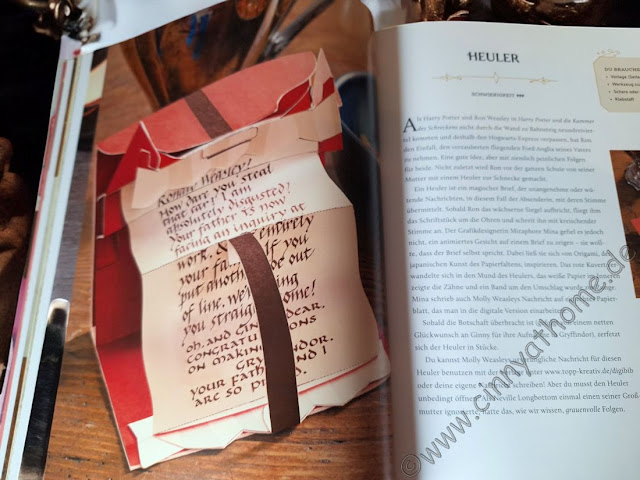 RONALD WEASLEY!
How dare you steal
that car? I am
absolutely disgusted!
Your father is now
facing an inquiry at
work, entirely
your fa If you
put anoth oe out
of line, we
you straig ome!
Oh, and Gin dear,
CONGRATU ONS
ON MAKIN
GR NDOR.
YOUR FATH ND I
ARE SO P
HEULER
SCHWIERIGKEIT
Als Harry Potter und Ron Weasley in Harry Potter und die Kammer
des Schreckens nicht durch die Wand zu Bahnsteig neundreivier-
tel kommen und deshalb den Hogwarts-Express verpassen, hat Ron
den Einfall, den verzauberten fliegenden Ford Anglia seines Vaters
zu nehmen. Eine gute Idee, aber mit ziemlich peinlichen Folgen
für beide. Nicht zuletzt wird Ron vor der ganzen Schule von seiner
Mutter mit einem Heuler zur Schnecke gemacht.
Ein Heuler ist ein magischer Brief, der unangenehme oder wü-
tende Nachrichten, in diesem Fall der Absenderin, mit deren Stimme
übermittelt. Sobald Ron das wächserne Siegel aufbricht, fliegt ihm
das Schriftstück um die Ohren und schreit ihn mit kreischender
Stimme an. Der Grafikdesignerin Miraphora Mina gefiel es jedoch
nicht, ein animiertes Gesicht auf einem Brief zu zeigen – sie woll-
te, dass der Brief selbst spricht. Dabei ließ sie sich von Origami, der
japanischen Kunst des Papierfaltens, inspirieren. Das rote Kuvert
wandelte sich in den Mund des Heulers, das weiße Papier im
zeigte die Zähne und ein Band um den Umschlag wurde zur Zunge.
Mina schrieb auch Molly Weasleys Nachricht auf ein Papier-
blatt, das man in die digitale Version einarbeite
Sobald die Botschaft überbracht ist einem netten
Glückwunsch an Ginny für ihre Aufn Gryffindor), zerfetzt
sich der Heuler in Stücke.
Du kannst Molly Weasleys ursprüngliche Nachricht für diesen
Heuler benutzen mit der ter www.topp-kreativ.de/digibib
oder deine eigene schreiben! Aber du musst den Heuler
unbedingt öffn Als Neville Longbottom einmal einen seiner Groß-
mutter ignorierte, hatte das, wie wir wissen, grauenvolle Folgen.
DU BRAUCHS
• Vorlage
• Werkzeug
• Schere oder
• Klebstoff
©www.cinnyathome.de